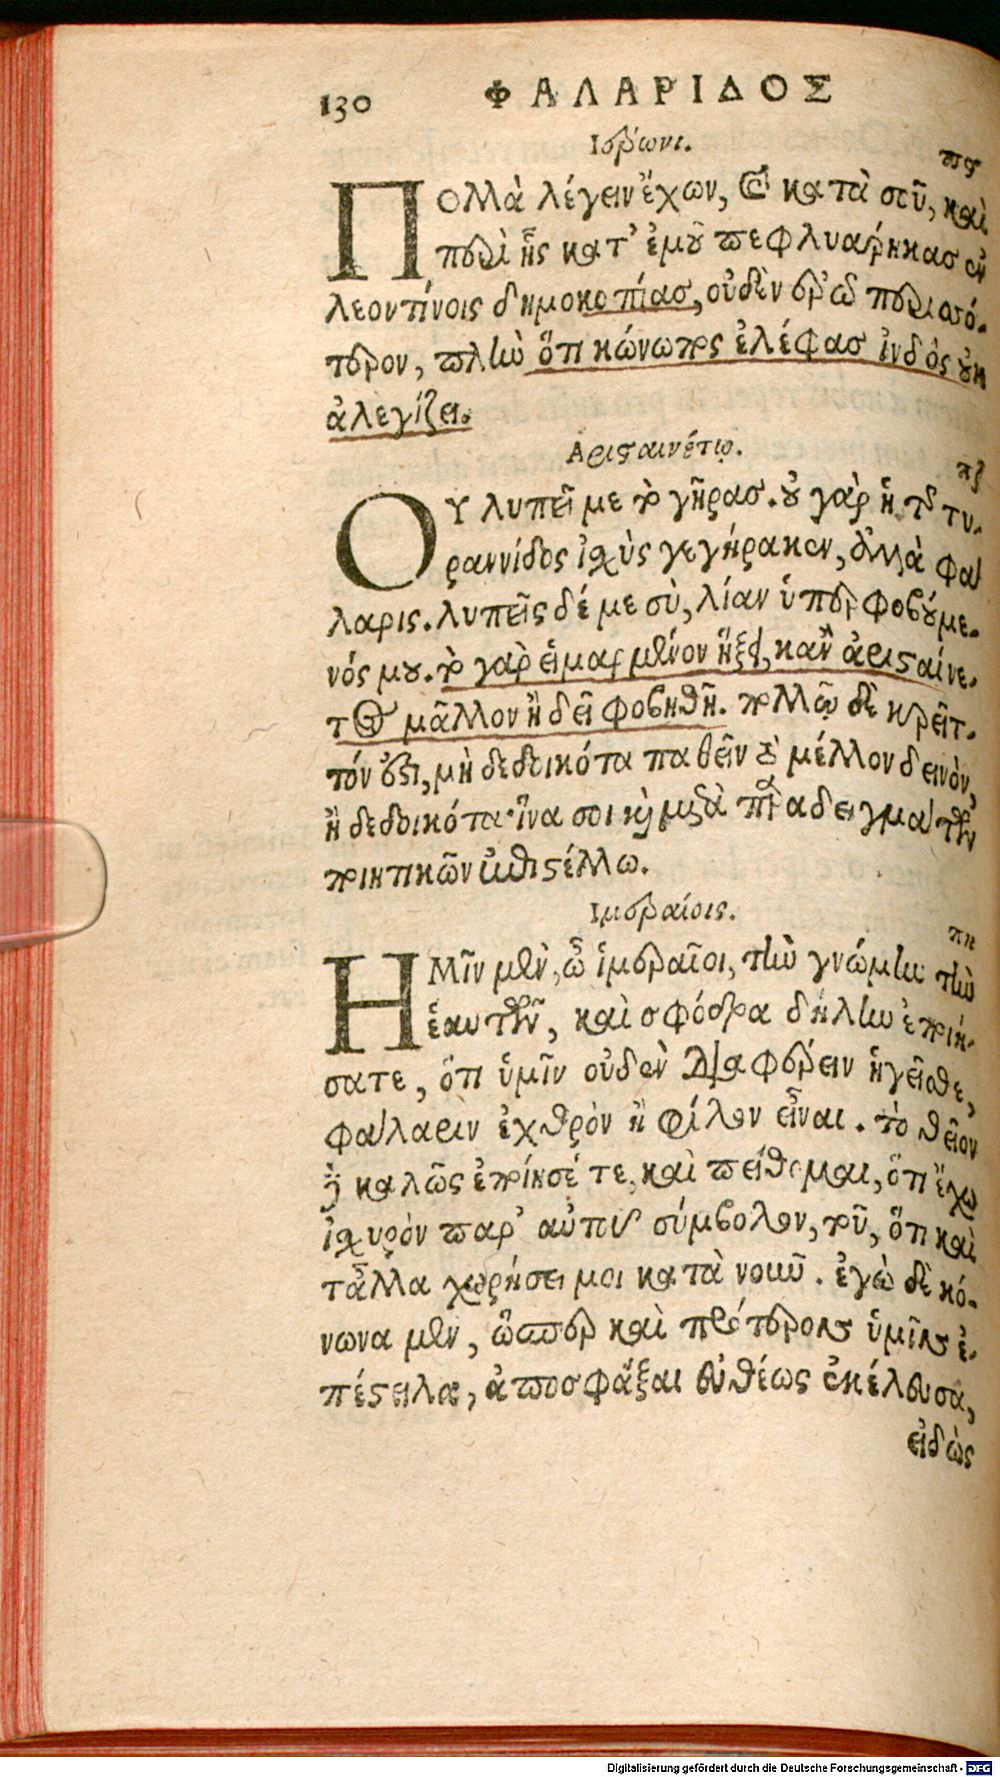 130 ΦΑΛΑΡΙΔΟΣ
Ιέρωνι.
πϛ
Πολλὰ λέγειν ἔχων, καὶ κατὰ σοῦ, καὶ
περὶ ἧς κατ' ἐμοῦ πεφλυάρηκας ἐν
λεοντίνοις δημοκοπίας, οὐδὲν ἐρῶ περισσό-
τερον, πλὴν ὅτι κώνωπος ἐλέφας ἰνδὸς οὐκ
ἀλεγίζει.
Αρισταινέτῳ.
πζ
ΟΥ λυπεῖ με τὸ γῆρας. οὐ γὰρ ἡ τῆς τυ-
ραννίδος ἰσχὺς γεγήρακεν, ἀλλὰ φα
λαρις. λυπεῖς δέ με σὺ, λίαν ὑπερφοβούμε-
νός μου. τὸ γὰρ εἱμαρμένον ἥξει, κἂν ἀρισταίνε-
τος μᾶλλον ἢ δεῖ φοβηθῇ. πολλῷ δὲ κρεῖτ-
τόν ἐστι, μὴ δεδοικότα παθεῖν τὸ μέλλον δεινὸν,
ἢ δεδοικότα· ἵνα σοι καὶ μετὰ παραδειγμάτων
ποιητικῶν ἐπιστέλλω.
Ιμεραίοις.
πη
ΗΜῖν μὲν, ὦ ἱμεραῖοι, τὴν γνώμην τὴν
ἑαυτῶν, καὶ σφόδρα δήλην ἐποιή-
σατε, ὅτι ὑμῖν οὐδὲν διαφέρειν ἡγεῖσθε,
φάλαριν ἐχθρὸν ἢ φίλον εἶναι. τὸ θεῖον
δὲ καλῶς ἐποίησέ τε, καὶ πείθομαι, ὅτι ἔχω
ἰσχυρὸν παρ' αὐτοῦ σύμβολον, τοῦ, ὅτι καὶ
τἆλλα χωρήσει μοι κατὰ νοιῦ. ἐγὼ δὲ κό-
νωνα μὲν, ὥσπερ καὶ πρότερον ὑμῖν ἐ-
πέστειλα, ἀποσφάξαι εὐθέως ἐκέλευσα,
εἰδὼς
Digitalisierung gefördert durch die Deutsche Forschungsgemeinschaft - DFG